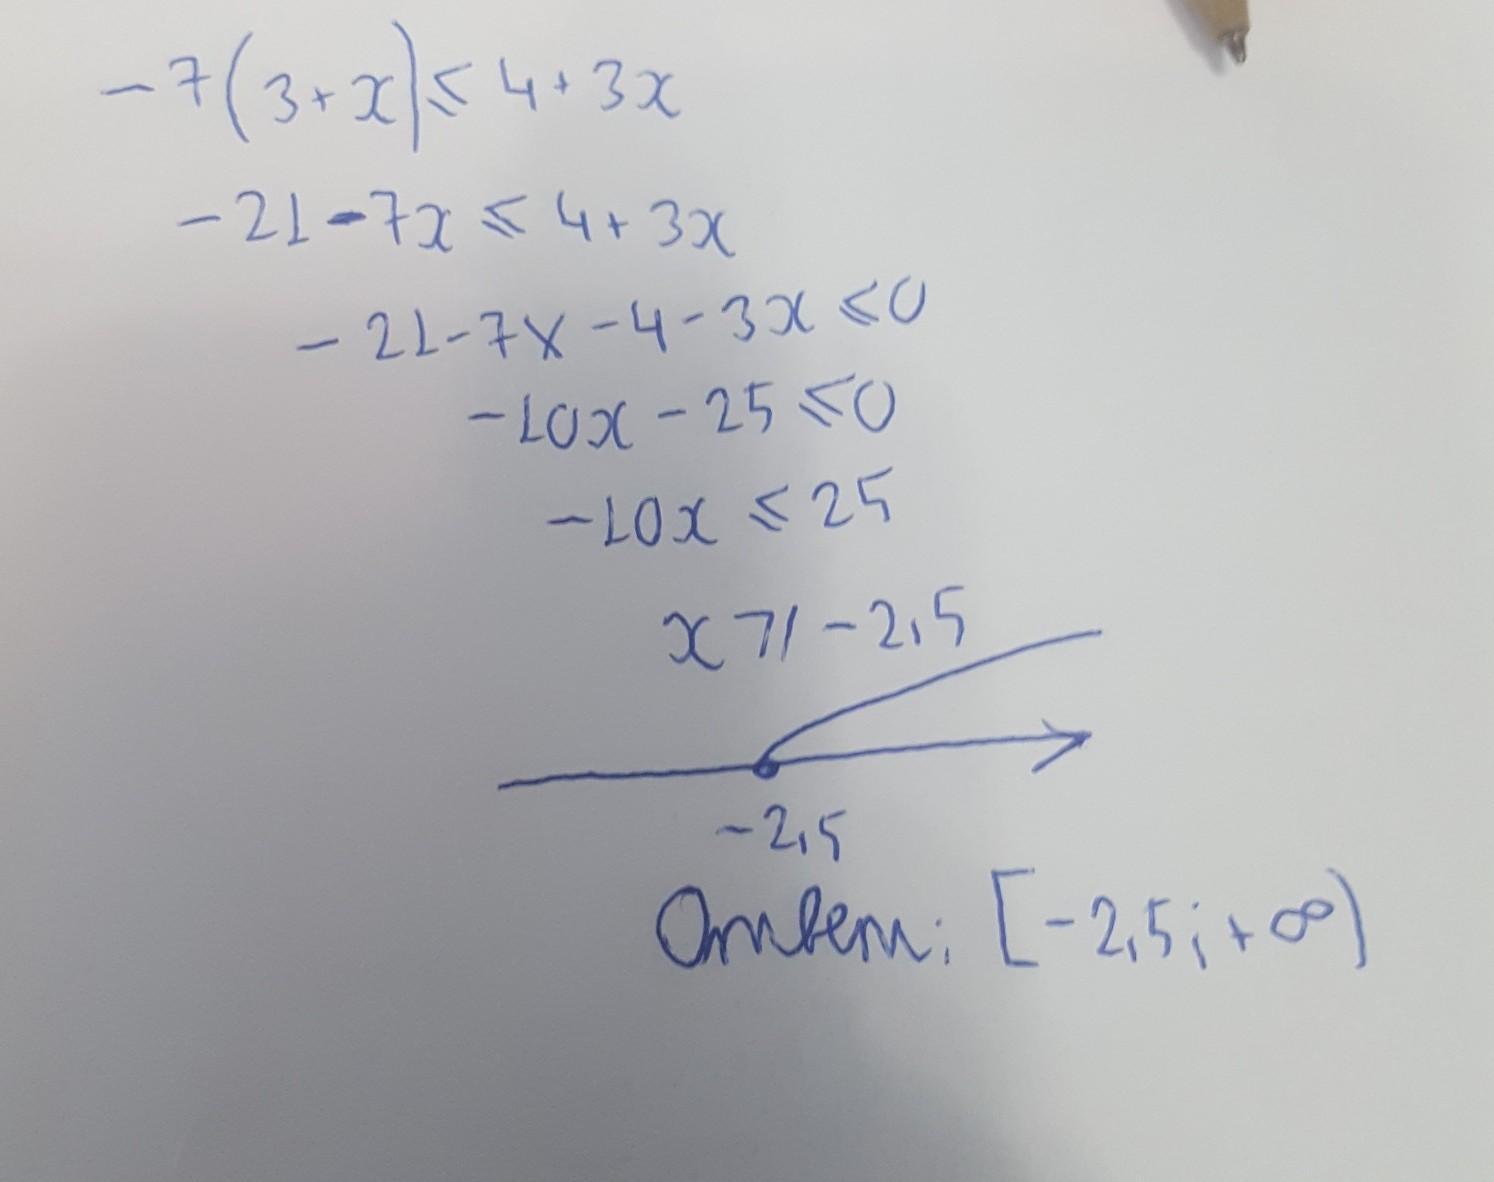 -7(3+x)⩽4+3x
-21-7x⩽4+3x
-21-7x-4-3x⩽0
-10x-25⩽0
-10x⩽25
x⩾-2,5
-2,5
Ответ: [-2,5;+∞)